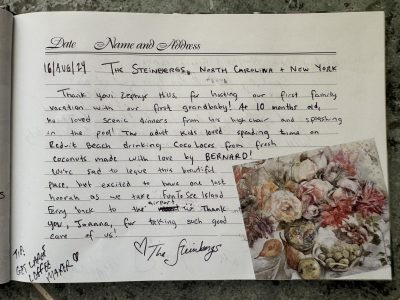 Date Name and Address
16/AUG/24 THE STEINBERGS, NORTH CAROLINA + NEW YORK
Thank you Zephyr Hills for hosting our first family
vacation with our first grandbaby! At 10 months old,
he loved scenic dinners from his high chair and splashing
in the pool! The adult kids loved spending time on
Reduit Beach drinking Coco Locos from fresh
coconuts made with love by BERNARD!
We're sad to leave this beautiful
place, but excited to have one last
hoorah as we take FunToSee Island
Ferry back to the airport. Thank
you, Joanna, for taking such good
care of us!
♡ The Steinbergs
TIP:
GET LARGE
COFFEE
MAKER ♡